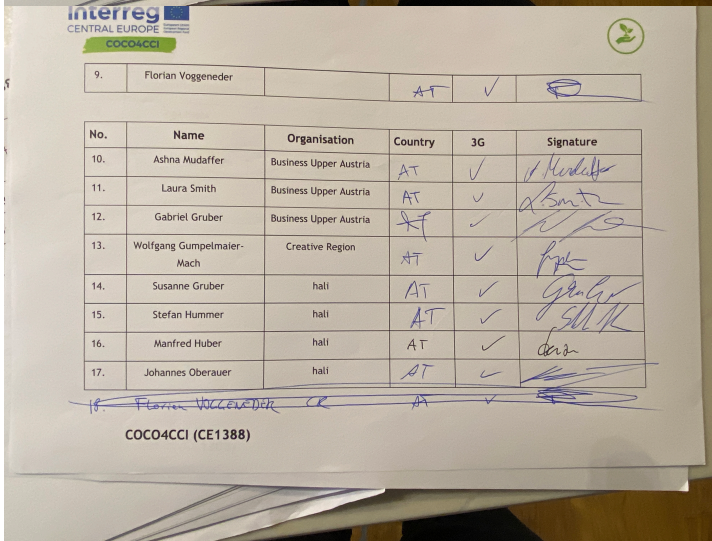 Interreg
CENTRAL EUROPE
COCO4CCI
9. Florian Voggeneder AT ✓
No. Name Organisation Country 3G Signature
10. Ashna Mudaffer Business Upper Austria AT ✓ Mudaffer
11. Laura Smith Business Upper Austria AT ✓ L. Smith
12. Gabriel Gruber Business Upper Austria AT ✓
13. Wolfgang Gumpelmaier- Creative Region AT ✓
Mach
14. Susanne Gruber hali AT ✓
15. Stefan Hummer hali AT ✓
16. Manfred Huber hali AT ✓
17. Johannes Oberauer hali AT ✓
18. Florian VOGGENEDER CR AT ✓
COCO4CCI (CE1388)